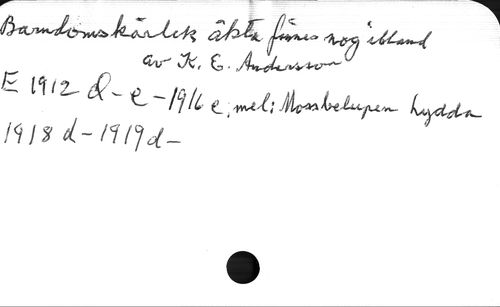 Barndomskärlek äkta finnes nog ibland
av K. E. Andersson
E 1912 d-e-1916 e, mel: Mossbelupen hydda
1918 d-1919 d-